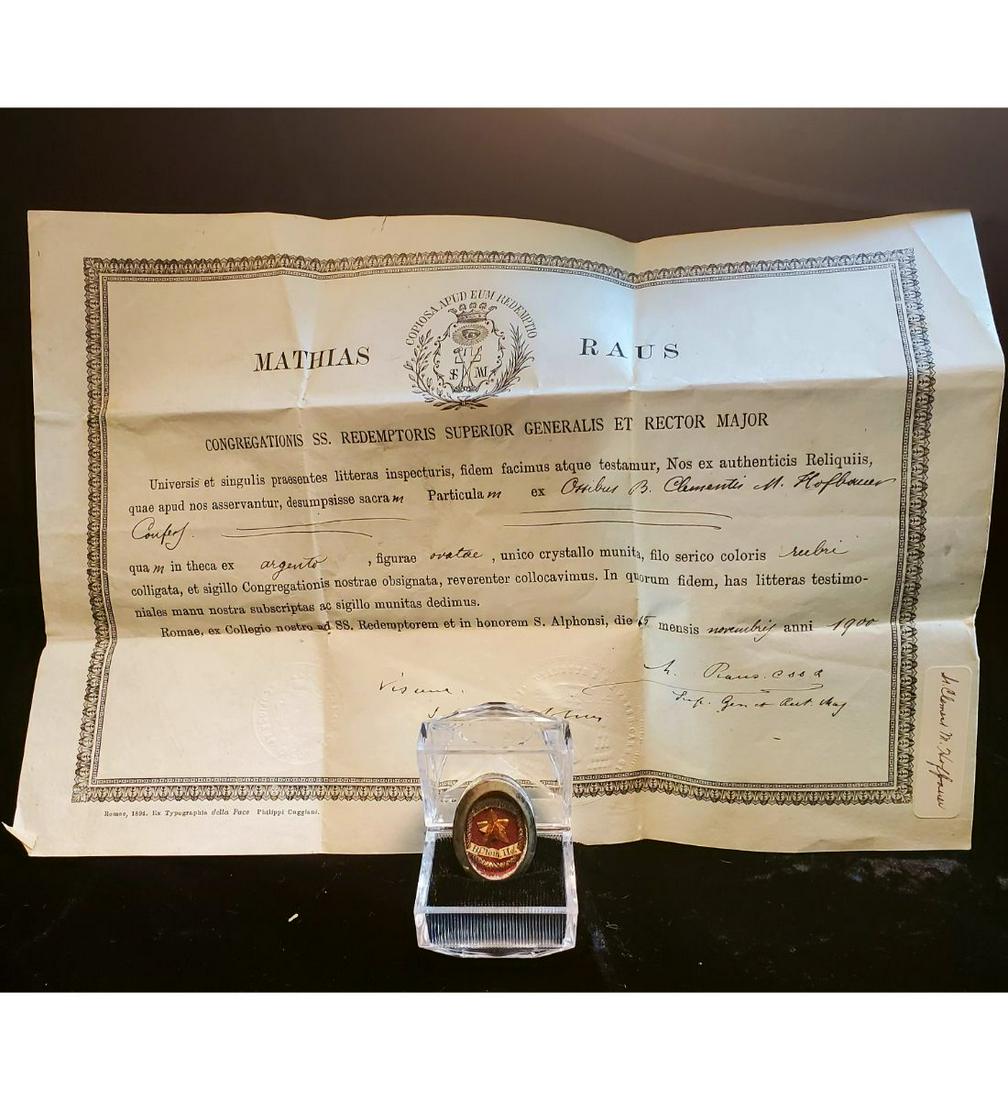 COPIOSA APUD EUM REDEMPTIO
MATHIAS RAUS
CONGREGATIONIS SS. REDEMPTORIS SUPERIOR GENERALIS ET RECTOR MAJOR
Universis et singulis praesentes litteras inspecturis, fidem facimus atque testamur, Nos ex authenticis Reliquiis,
quae apud nos asservantur, desumpsisse sacram Particulam ex Ossibus B. Clementis M. Hofbauer
Confess.
quam in theca ex argento, figurae ovatae, unico crystallo munita, filo serico coloris rubri
colligata, et sigillo Congregationis nostrae obsignata, reverenter collocavimus. In quorum fidem, has litteras testimo-
niales manu nostra subscriptas ac sigillo munitas dedimus.
Romae, ex Collegio nostro ad SS. Redemptorem et in honorem S. Alphonsi, die 15 mensis novembris anni 1900
M. Raus. CSSR
Sup. Gen et Rect. Maj
Romae, 1894. Ex Typographia della Pace Philippi Cuggiani.
St Clement M. Hoffbauer